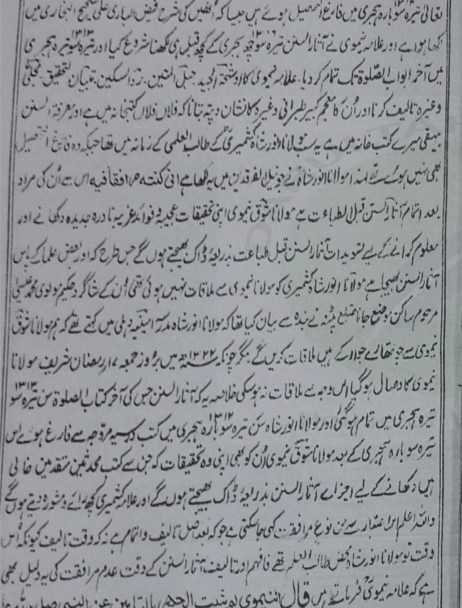 تعالیٰ تیرہ سو بارہ ہجری میں فارغ التحصیل ہوئے ہیں جیسا کہ انھیں کی شرح فیض الباری علی صحیح البخاری میں
لکھا ہوا ہے اور علامہ نیموی نے آثار السنن تیرہ سو ہجری کے کچھ قبل ہی لکھنا شروع کیا اور تیرہ سو تیرہ ہجری
میں آخر ابواب الصلوٰۃ تک تمام کر دیا۔ علامہ نیموی کا اوشحۃ الجید حبل المتین۔ رد السکین۔ تبیان التحقیق۔ مجلی
وغیرہ تالیف کرنا اور ان کا معجم کبیر طبرانی وغیرہ کا نشان و پتہ بتانا کہ فلاں فلاں کتبخانہ میں ہے اور معرفۃ السنن
بیہقی میرے کتب خانہ میں ہے یہ سب مولانا انور شاہ کشمیری کے طالب العلمی کے زمانہ میں تھا جبکہ وہ فارغ التحصیل
بھی نہیں ہوئے تھے مولانا انور شاہ نے جو نیل الفرقدین میں یہ لکھا ہے انی کنت مرافقا فیہ اس سے ان کی مراد
بعد اتمام آثار السنن قبل الطباعت ہے مولانا شوق نیموی اپنی تحقیقات عجیبہ و فوائد غریبہ نادرہ جدیدہ دکھانے اور
معلوم کرانے کے لیے تسویدات آثار السنن قبل طباعت بذریعہ ڈاک بھیجتے ہوں گے جس طرح کہ اور بعض علما کے پاس
آثار السنن بھیجا ہے مولانا انور شاہ کشمیری کو مولانا نیموی سے ملاقات نہیں ہوئی تھی ان کے شاگرد حکیم مولوی محمد
مرحوم ساکن موضع ضلع پٹنہ نے بندہ سے بیان کیا تھا کہ مولانا انور شاہ مدرسہ امینیہ دہلی میں کہتے تھے کہ ہم مولانا شوق
نیموی سے جو تھا اسے جوار کے ہیں ملاقات کریں گے مگر چونکہ ۱۳۲۲ھ میں بروز جمعہ رمضان شریف مولانا
نیموی کا وصال ہو گیا اس وجہ سے ملاقات نہ ہو سکی خلاصہ یہ کہ آثار السنن جس کی آخر کتاب الصلوٰۃ سن تیرہ سو
تیرہ ہجری میں تمام ہو گئی اور مولانا انور شاہ سن تیرہ سو بارہ ہجری میں کتب درسیہ مروجہ سے فارغ ہوئے اس
تیرہ سو بارہ ہجری کے بعد مولانا شوق نیموی ان کو بھی اپنی وہ تحقیقات کہ جن سے کتب محدثین متقدمین خالی
ہیں دکھانے کے لیے اجزائے آثار السنن بذریعہ ڈاک بھیجتے ہوں گے اور علامہ کشمیری کچھ رائے و مشورہ دیتے ہوں گے
واللہ اعلم اس اعتبار سے من نوع مرافقت کہی جا سکتی ہے جو کہ بعد اصل تالیف و اتمام ہے نہ کہ وقت تالیف کیونکہ اس
وقت تو مولانا انور شاہ محض طالب العلم تھے فافہم اور تالیف آثار السنن کے وقت عدم مرافقت کی یہ دلیل بھی
ہے کہ علامہ نیموی فرماتے ہیں قال النیموی